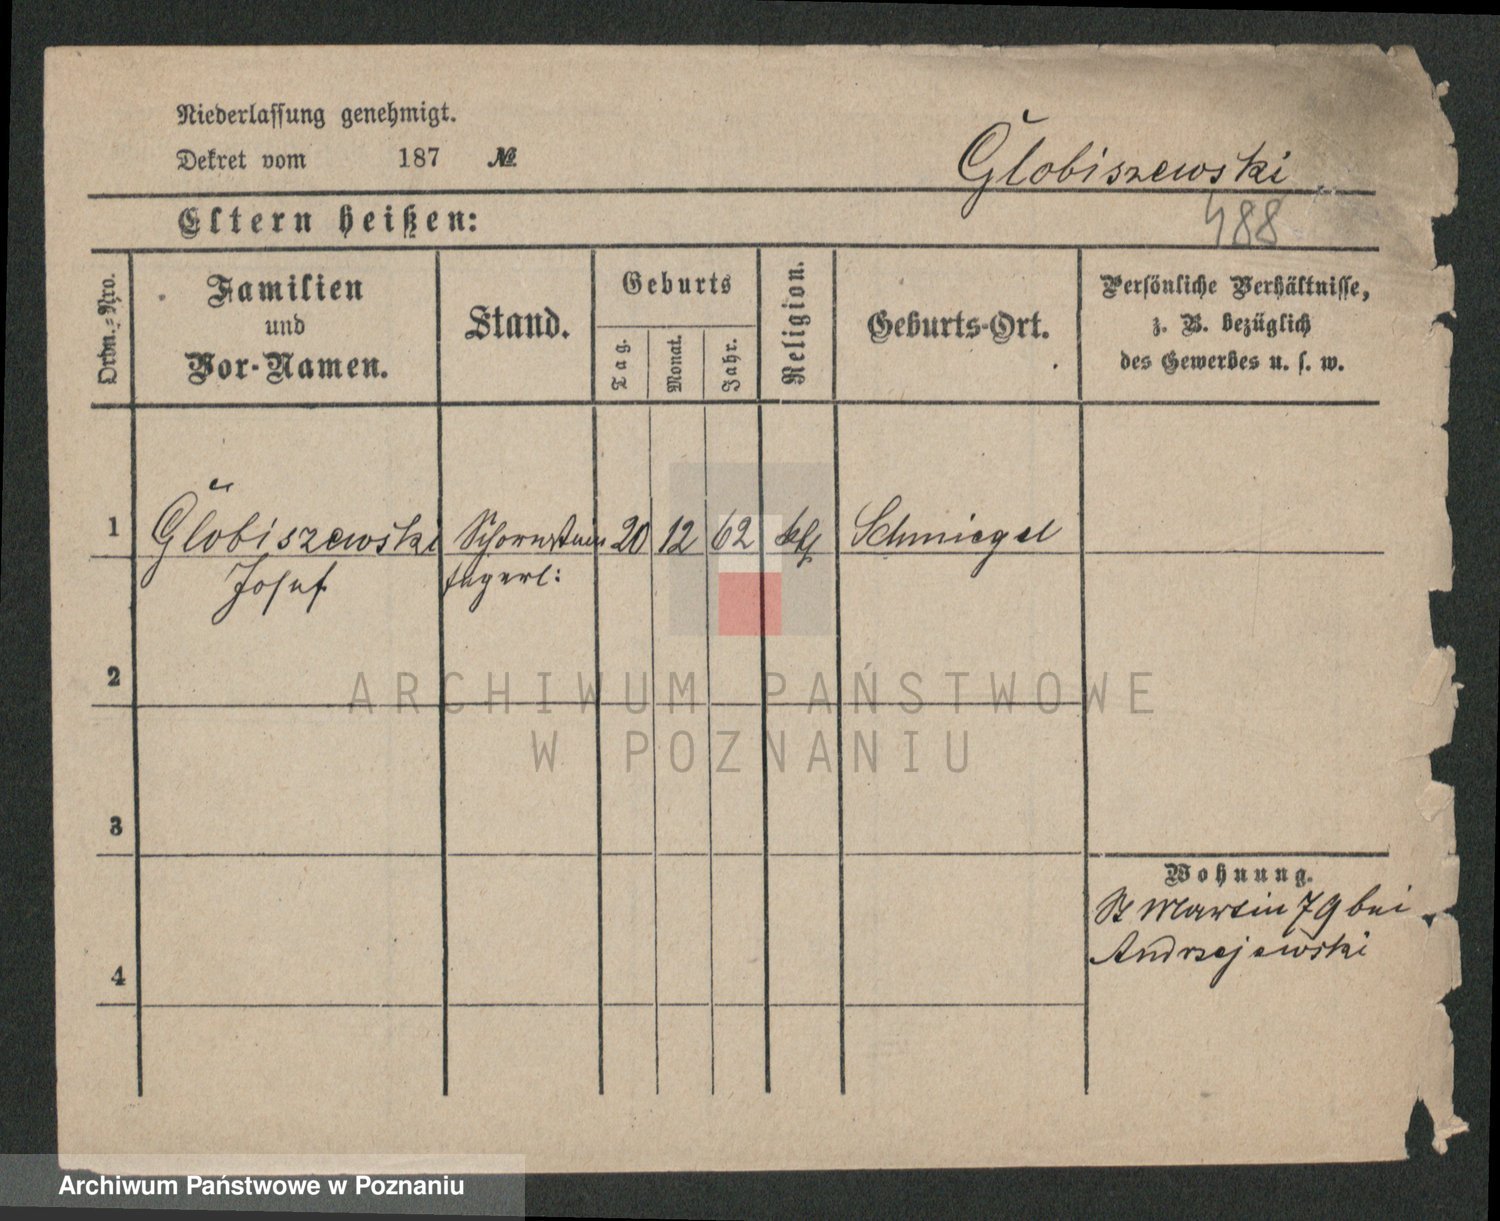 Niederlassung genehmigt.
Dekret vom 187 №
Globiszewski
488
Eltern heißen:
Ordn.-Nro.
Familien
und
Vor-Namen.
Stand.
Geburts
Tag.
Monat.
Jahr.
Religion.
Geburts-Ort.
Persönliche Verhältnisse,
z. B. bezüglich
des Gewerbes u. s. w.
1 Globiszewski Schornstein 20 12 62 kth Schmiegel
Josef fegerl:
2
ARCHIWUM PAŃSTWOWE
W POZNANIU
3
Wohnung.
St Martin 79 bei
Andrzejewski
4
Archiwum Państwowe w Poznaniu